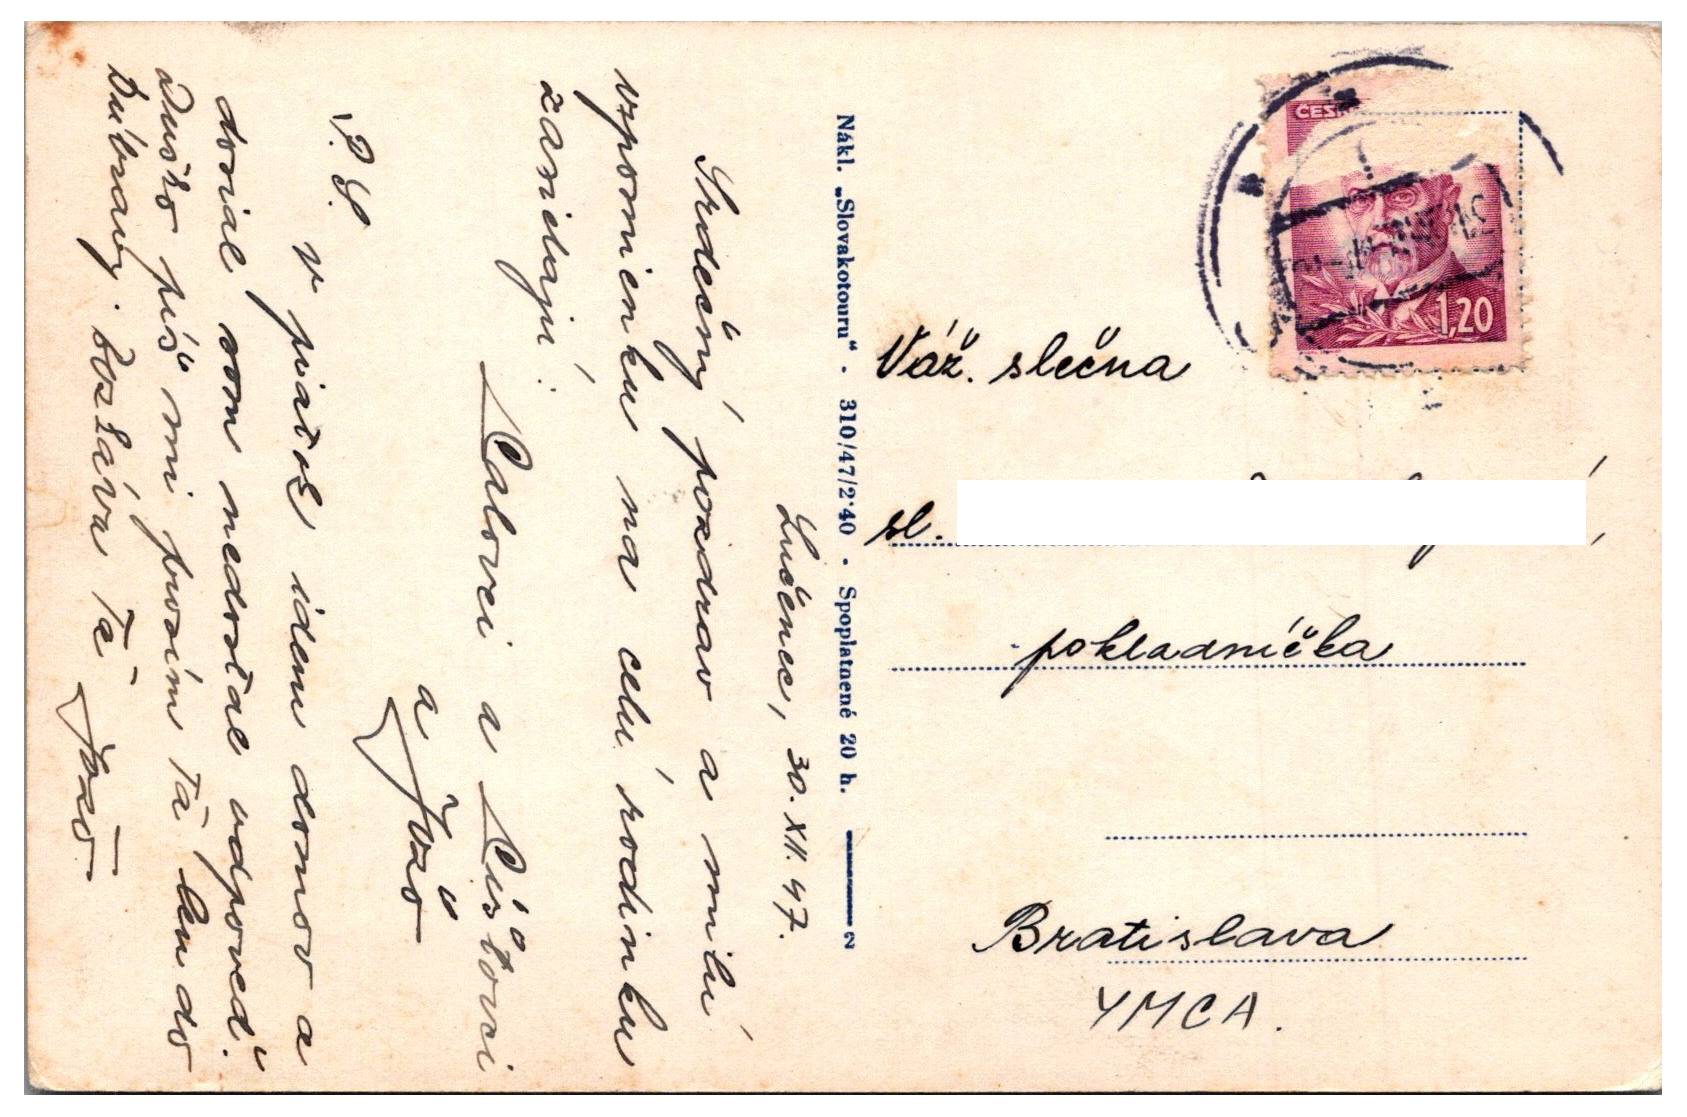 Lučenec, 30. XII. 47.
Srdečný pozdrav a milú
vzpomienku na celú rodinku
zanechajú:
Lalovci a Lištovci
a Jožo
P. S.
V piatok idem domov a
dosial som nedostal odpoveď.
Duško píš mi prosím ťa len do
Dúbravy. Bozkáva Ťa
Jožo
Nákl. „Slovakotouru“ · 310/47/2·40 · Spoplatnené 20 h. 2
ČES
1,20
Váž. slečna
sl.
pokladníčka
Bratislava
YMCA.